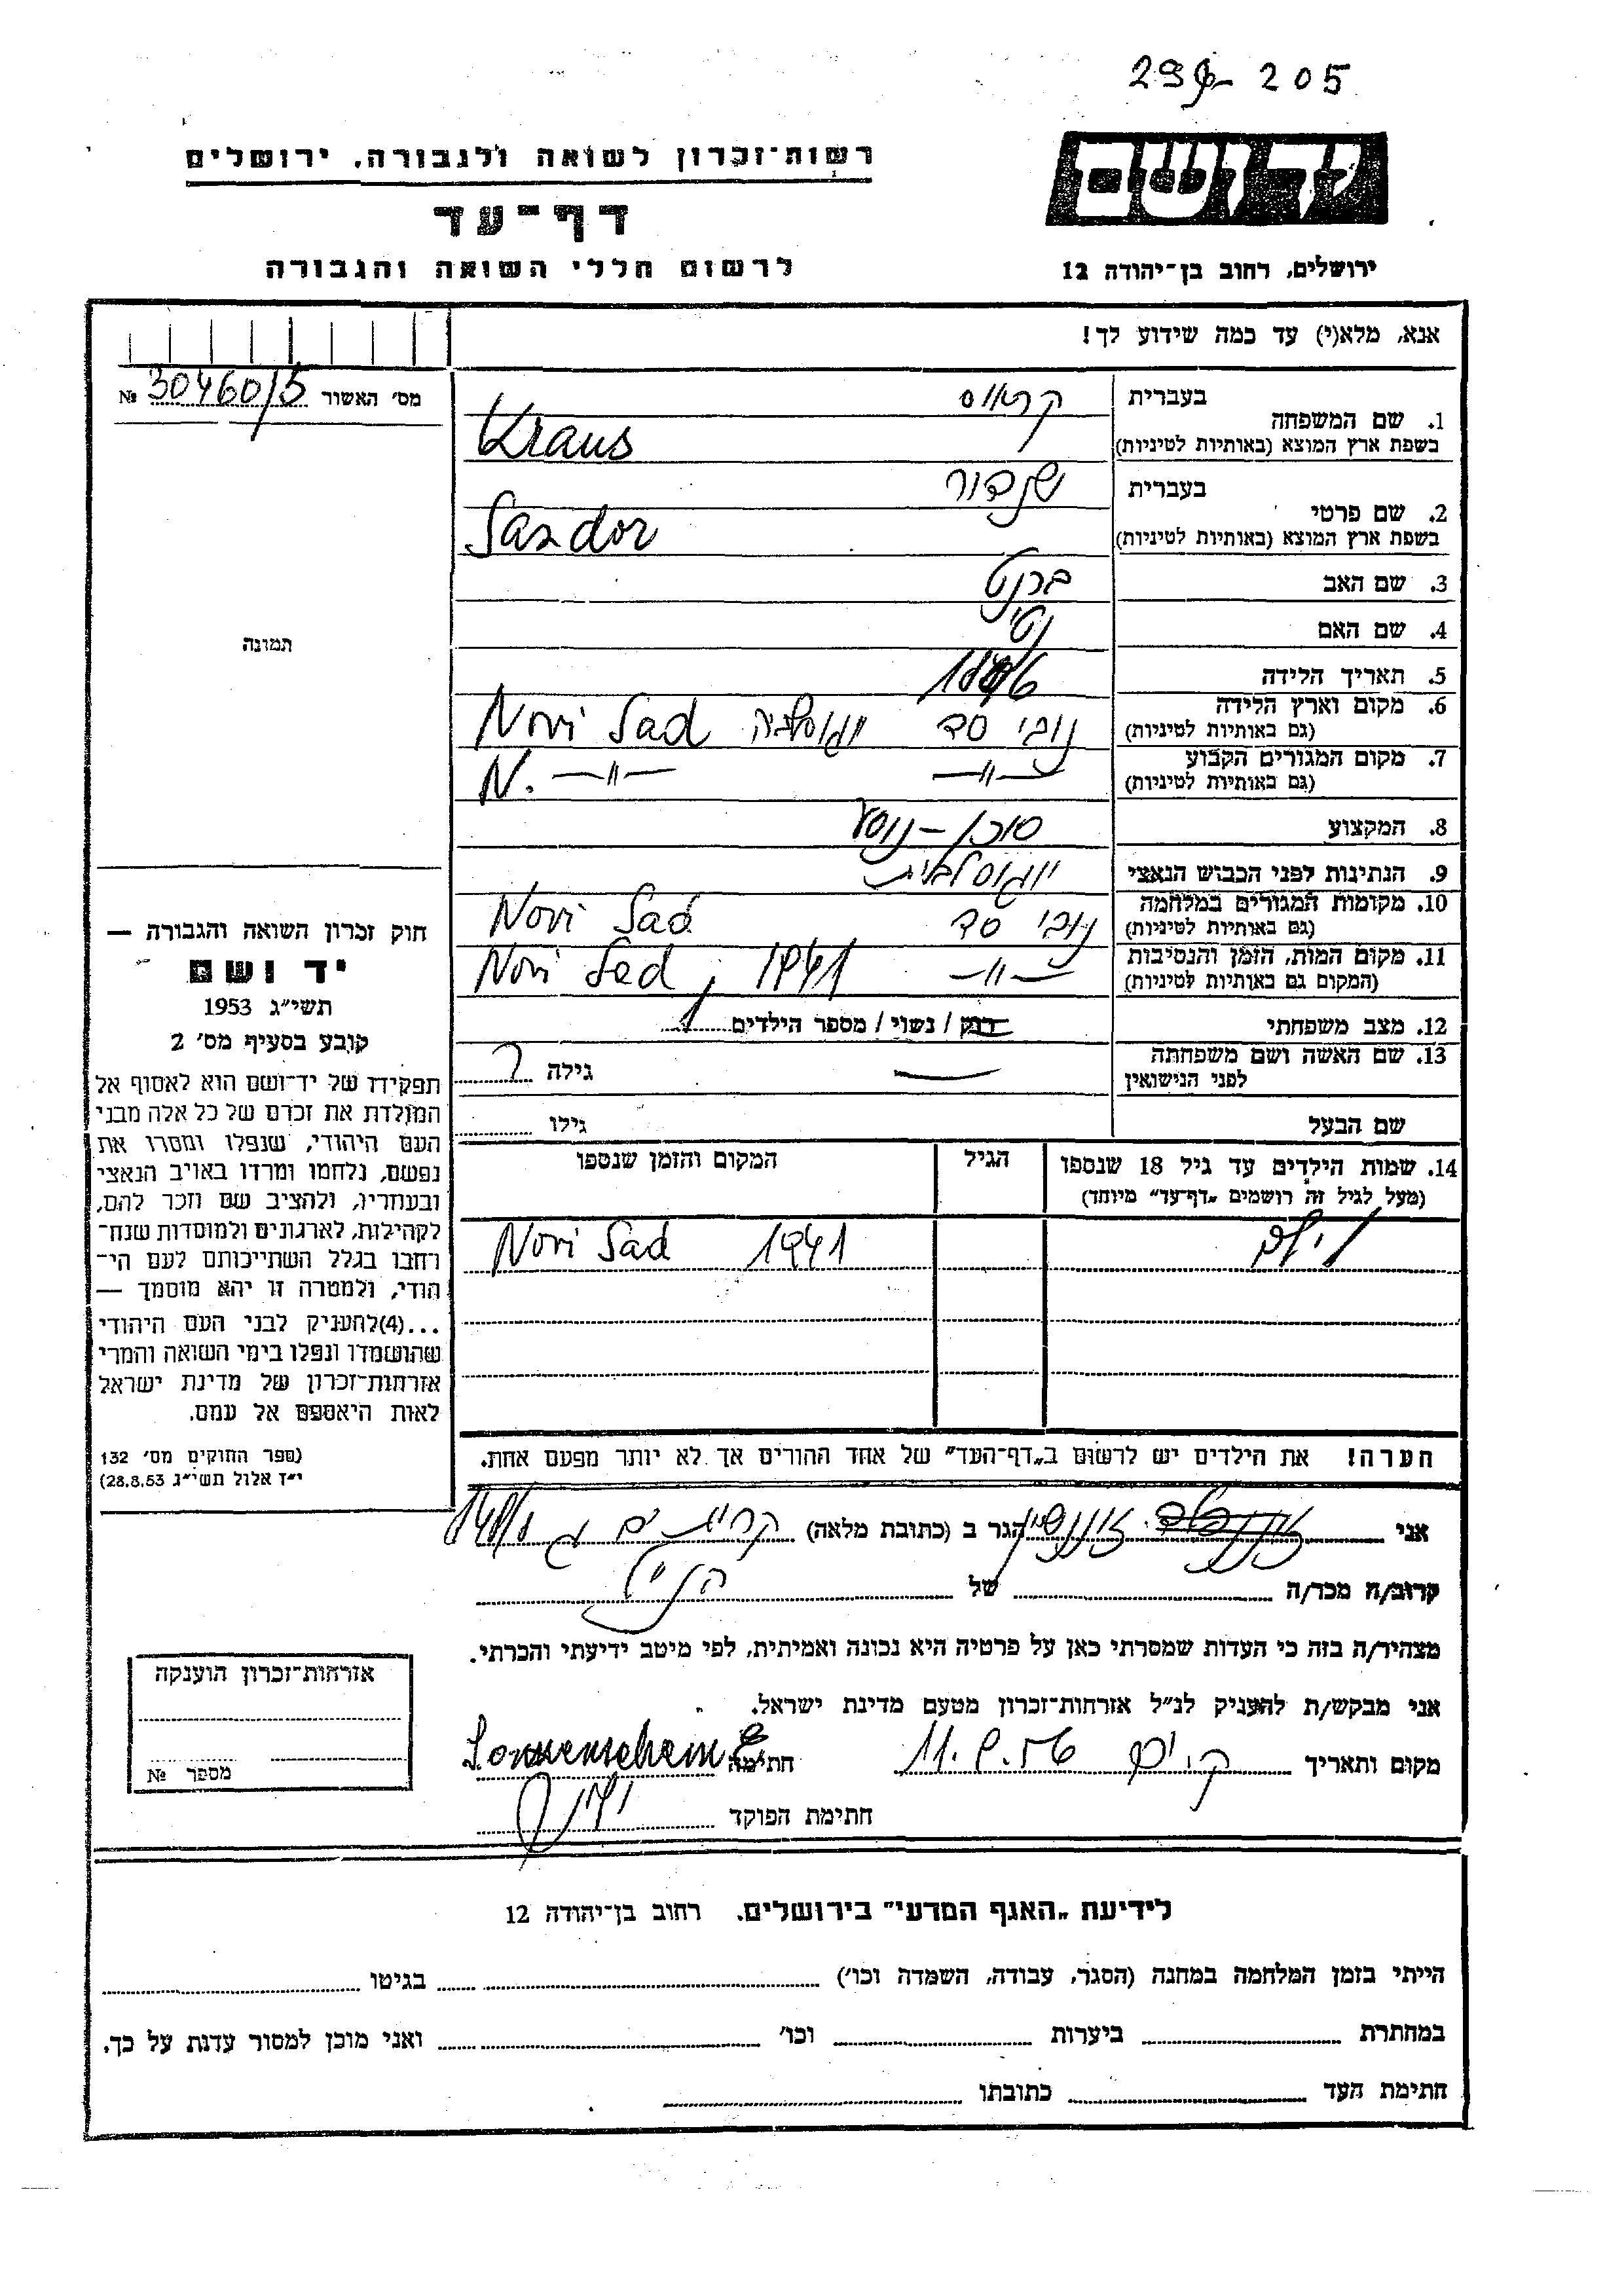 299-205
רשות־זכרון לשואה ולגבורה, ירושלים
יד ושם
דף־עד
לרשום חללי השואה והגבורה
ירושלים, רחוב בן־יהודה 12
אנא, מלא(י) עד כמה שידוע לך!
מס׳ האשור 30460/5 №
1. שם המשפחה בעברית קראוס
בשפת ארץ המוצא (באותיות לטיניות) Kraus
2. שם פרטי בעברית שנדור
בשפת ארץ המוצא (באותיות לטיניות) Sandor
3. שם האב ברנט
4. שם האם
5. תאריך הלידה
6. מקום וארץ הלידה נובי סד יוגוסלביה Novi Sad
(גם באותיות לטיניות)
7. מקום המגורים הקבוע —״— N. —״—
(גם באותיות לטיניות)
8. המקצוע סוכן – נוסע
9. הנתינות לפני הכבוש הנאצי יוגוסלבית
10. מקומות המגורים במלחמה נובי סד Novi Sad
(גם באותיות לטיניות)
11. מקום המות, הזמן והנסיבות —״— Novi Sad, 1941
(המקום גם באותיות לטיניות)
12. מצב משפחתי רווק / נשוי / מספר הילדים 1
13. שם האשה ושם משפחתה
לפני הנישואין — גילה ?
שם הבעל גילו
14. שמות הילדים עד גיל 18 שנספו הגיל המקום והזמן שנספו
(מעל לגיל זה רושמים „דף־עד״ מיוחד)
1 ילד Novi Sad 1941
הערה! את הילדים יש לרשום ב„דף־העד״ של אחד ההורים אך לא יותר מפעם אחת.
תמונה
חוק זכרון השואה והגבורה —
יד ושם
תשי״ג 1953
קובע בסעיף מס׳ 2
תפקידו של יד־ושם הוא לאסוף אל
המולדת את זכרם של כל אלה מבני
העם היהודי, שנפלו ומסרו את
נפשם, נלחמו ומרדו באויב הנאצי
ובעוזריו, ולהציב שם וזכר להם,
לקהילות, לארגונים ולמוסדות שנח־
רחבו בגלל השתייכותם לעם הי־
הודי, ולמטרה זו יהא מוסמך —
...(4)להעניק לבני העם היהודי
שהושמדו ונפלו בימי השואה והמרי
אזרחות־זכרון של מדינת ישראל
לאות היאספם אל עמם.
(ספר החוקים מס׳ 132
י״ז אלול תשי״ג 28.8.53)
אני הגר ב (כתובת מלאה) קרית ים ג
קרוב/ה מכר/ה של הנ״ל
מצהיר/ה בזה כי העדות שמסרתי כאן על פרטיה היא נכונה ואמיתית, לפי מיטב ידיעתי והכרתי.
אני מבקש/ת להעניק לנ״ל אזרחות־זכרון מטעם מדינת ישראל.
מקום ותאריך ק. ים 11.9.56 חתימה Sonnenschein E
חתימת הפוקד
אזרחות־זכרון הוענקה
מספר №
לידיעת „האגף המדעי״ בירושלים, רחוב בן־יהודה 12
הייתי בזמן המלחמה במחנה (הסגר, עבודה, השמדה וכו׳) בגיטו
במחתרת ביערות וכו׳ ואני מוכן למסור עדות על כך.
חתימת העד כתובתו